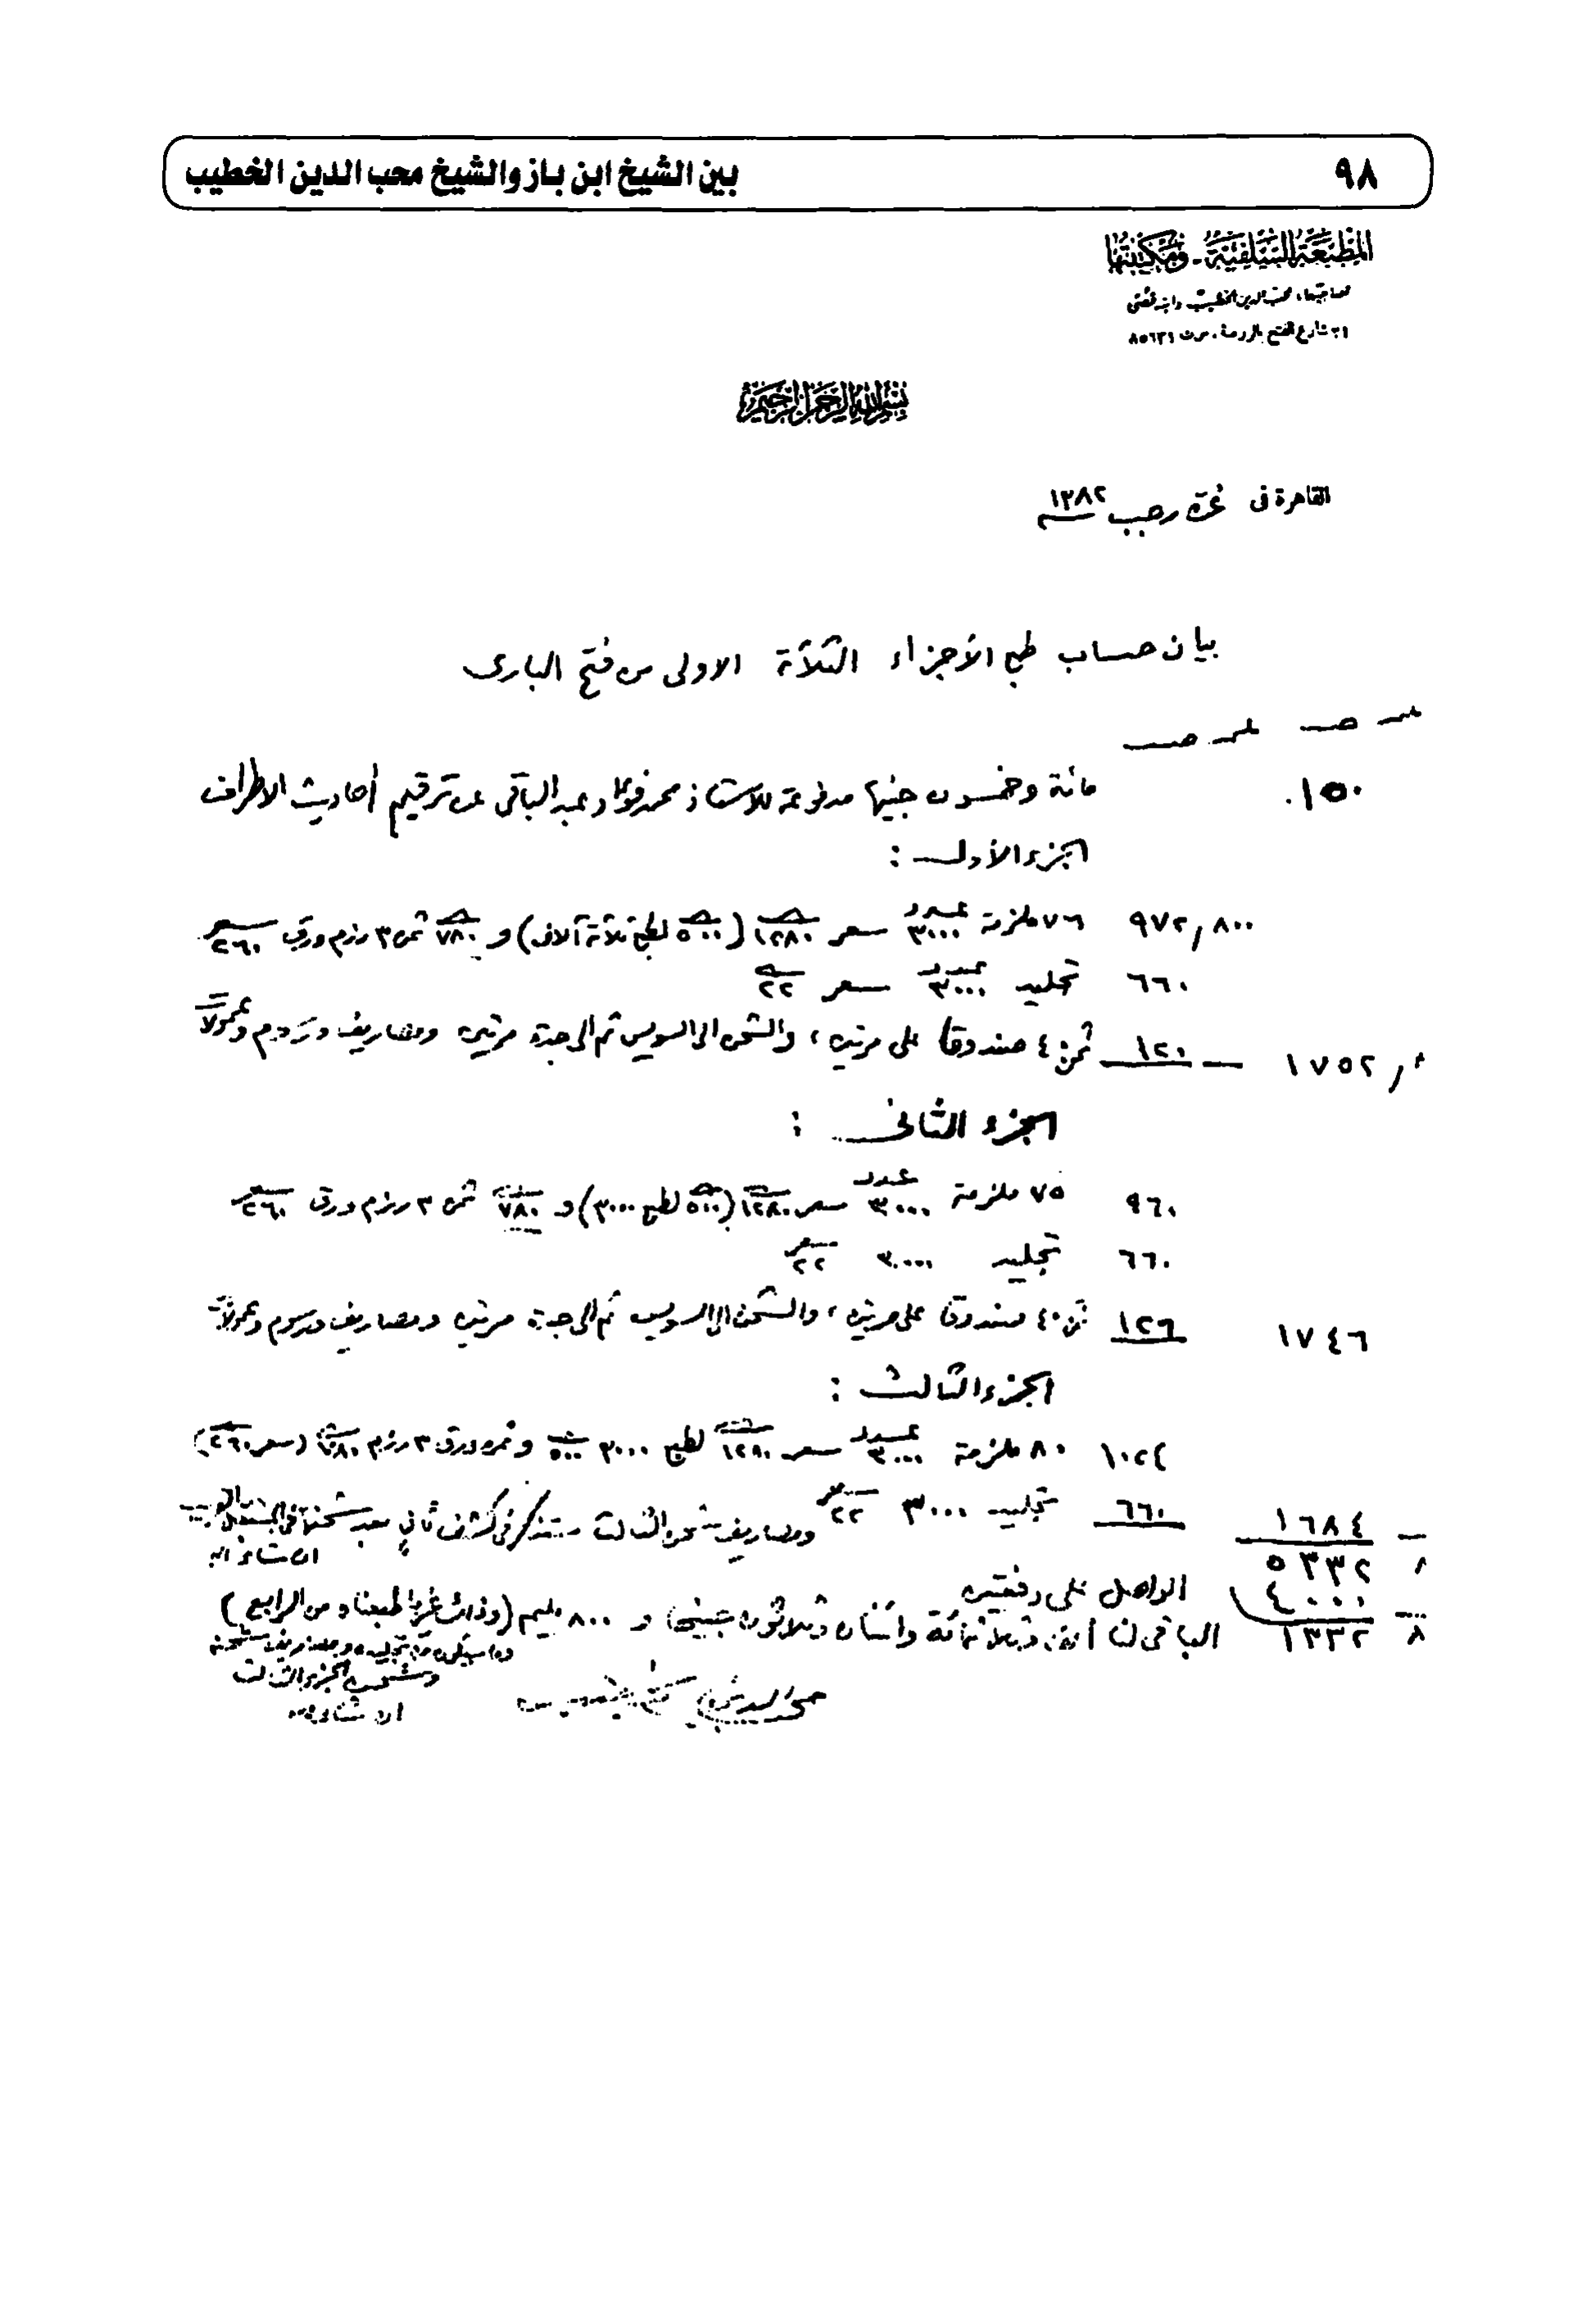 ٩٨ بين الشيخ ابن باز والشيخ محب الدين الخطيب
المطبعة السلفية - ومكتبتها
لصاحبيها: محب الدين الخطيب وابنه قصي
٢١ شارع الفتح بالروضة، ت ٨٥٦٣١
بسم الله الرحمن الرحيم
القاهرة فى غرة رجب سنة ١٣٨٢
بيان حساب طبع الأجزاء الثلاثة الاولى من فتح البارى
مليم جنيه مليم جنيه
١٥٠ مائة وخمسون جنيها مدفوعة للاستاذ محمد فؤاد عبد الباقى عن ترقيم أحاديث الاطراف
الجزء الأول :
٩٧٢,٨٠٠ ٧٦ ملزمة عدد ٣٠٠٠ سعر ١٢٨٠ (٥٠٠ لطبع ثلاثة آلاف) و ٧٨٠ ثمن ٣ رزم ورق سعر ٢٦٠
٦٦٠ تجليد عدد ٣٠٠٠ سعر ٢٢
١٧٥٢,٨ — ١٢٠ ثمن ٤٠ صندوقا على مرتين، والشحن الى السويس ثم الى جدة مرتين ومصاريف ورسوم وعمولات
الجزء الثانى :
٩٦٠ ٧٥ ملزمة عدد ٣٠٠٠ سعر ١٢٨٠ (٥٠٠ لطبع ٣٠٠٠) و ٧٨٠ ثمن ٣ رزم ورق سعر ٢٦٠
٦٦٠ تجليد ٣٠٠٠ سعر ٢٢
١٧٤٦ ١٢٦ ثمن ٤٠ صندوق على مرتين، والشحن الى السويس ثم الى جدة مرتين ومصاريف ورسوم وعمولات
الجزء الثالث :
١٠٢٤ ٨٠ ملزمة عدد ٣٠٠٠ سعر ١٢٨٠ لطبع ٣٠٠٠ ٥٠٠ وثمن ورق ٣ رزم ٧٨٠ (سعر ٢٦٠)
— ١٦٨٤ ٦٦٠ تجليد ٣٠٠٠ سعر ٢٢ ومصاريف شحن الثالث ستذكر فى كشف ثانٍ بعد شحنها فى
ان شاء الله
٨ ٥٣٣٢
... ٤٠٠٠ الواصل على دفعتين
٨ ١٣٣٢ الباقى لنا ألف وثلاثمائة واثنان وثلاثون جنيها و ٨٠٠ مليم (وذلك غير ما طبعناه من الرابع)
وما سيكون من تجليده ومصاريف شحنه
وشحن الجزء الثالث
ان شاء الله
محب الدين الخطيب